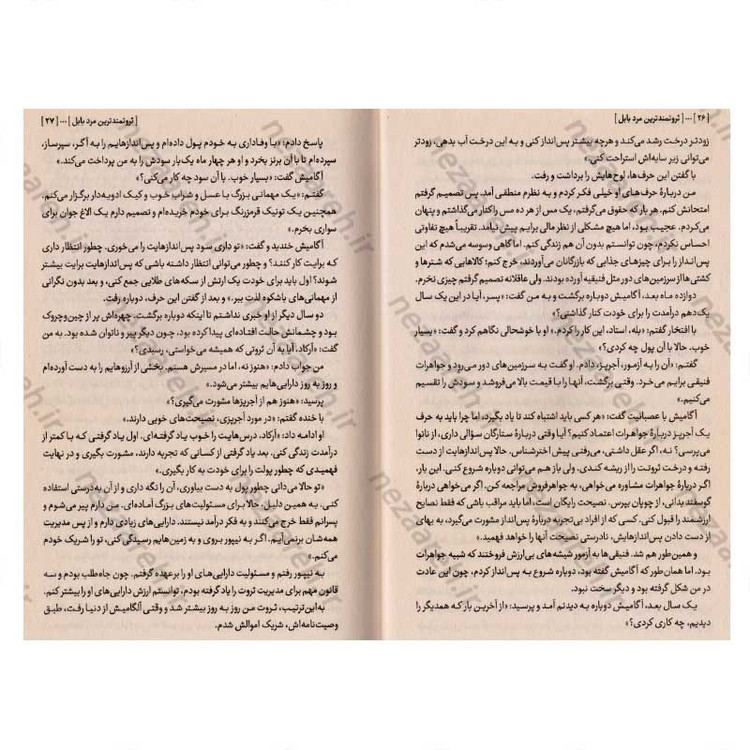 [ ۲۶ ] ... [ ثروتمندترین مرد بابل ]
زودتر درخت رشد می‌کند و هرچه بیشتر پس‌انداز کنی و به این درخت آب بدهی، زودتر
می‌توانی زیر سایه‌اش استراحت کنی.»
با گفتن این حرف‌ها، لوح‌هایش را برداشت و رفت.
من دربارهٔ حرف‌های او خیلی فکر کردم و به نظرم منطقی آمد. پس تصمیم گرفتم
امتحانش کنم. هر بار که حقوق می‌گرفتم، یک مس از هر ده مس را کنار می‌گذاشتم و پنهان
می‌کردم. عجیب بود، اما هیچ مشکلی از نظر مالی برایم پیش نیامد. تقریباً هیچ تفاوتی
احساس نکردم، چون توانستم بدون آن هم زندگی کنم. اما گاهی وسوسه می‌شدم که این
پس‌انداز را برای چیزهای جذابی که بازرگانان می‌آوردند، خرج کنم؛ کالاهایی که شترها و
کشتی‌ها از سرزمین‌های دور مثل فنیقیه آورده بودند. ولی عاقلانه تصمیم گرفتم چیزی نخرم.
دوازده ماه بعد، آگامیش دوباره برگشت و به من گفت: «پسر، آیا در این یک سال
یک‌دهم درآمدت را برای خودت کنار گذاشتی؟»
با افتخار گفتم: «بله، استاد، این کار را کردم.» او با خوشحالی نگاهم کرد و گفت: «بسیار
خوب. حالا با آن پول چه کردی؟»
گفتم: «آن را به آزمور، آجرپز، دادم. او گفت به سرزمین‌های دور می‌رود و جواهرات
فنیقی برایم می‌خرد. وقتی برگشت، آنها را با قیمت بالا می‌فروشد و سودش را تقسیم
می‌کنیم.»
آگامیش با عصبانیت گفت: «هر کسی باید اشتباه کند تا یاد بگیرد، اما چرا باید به حرف
یک آجرپز دربارهٔ جواهرات اعتماد کنیم؟ آیا وقتی دربارهٔ ستارگان سؤالی داری، از نانوا
می‌پرسی؟ نه، اگر عقل داشتی، می‌رفتی پیش اخترشناس. حالا پس‌اندازهایت از دست
رفته و درخت ثروتت را از ریشه کندی. ولی باز هم می‌توانی دوباره شروع کنی. این بار،
اگر دربارهٔ جواهرات مشاوره می‌خواهی، به جواهرفروش مراجعه کن. اگر می‌خواهی دربارهٔ
گوسفند بدانی، از چوپان بپرس. نصیحت رایگان است، اما باید مراقب باشی که فقط نصایح
ارزشمند را قبول کنی. کسی که از افراد بی‌تجربه دربارهٔ پس‌انداز مشورت می‌گیرد، به بهای
از دست دادن پس‌اندازهایش، نادرستی نصیحت آنها را خواهد فهمید.»
و همین‌طور هم شد. فنیقی‌ها به آزمور شیشه‌های بی‌ارزش فروختند که شبیه جواهرات
بود. اما همان‌طور که آگامیش گفته بود، دوباره شروع به پس‌انداز کردم، چون این عادت
در من شکل گرفته بود و دیگر سخت نبود.
یک سال بعد، آگامیش دوباره به دیدنم آمد و پرسید: «از آخرین بار که همدیگر را
دیدیم، چه کاری کردی؟»
[ ثروتمندترین مرد بابل ] ... [ ۲۷ ]
پاسخ دادم: «با وفاداری به خودم پول داده‌ام و پس‌اندازهایم را به آگر، سپرساز،
سپرده‌ام تا با آن برنز بخرد و او هر چهار ماه یک‌بار سودش را به من پرداخت می‌کند.»
آگامیش گفت: «بسیار خوب. با آن سود چه کار می‌کنی؟»
گفتم: «یک مهمانی بزرگ با عسل و شراب خوب و کیک ادویه‌دار برگزار می‌کنم.
همچنین یک تونیک قرمزرنگ برای خودم خریده‌ام و تصمیم دارم یک الاغ جوان برای
سواری بخرم.»
آگامیش خندید و گفت: «تو داری سود پس‌اندازهایت را می‌خوری. چطور انتظار داری
که برایت کار کنند؟ و چطور می‌توانی انتظار داشته باشی که پس‌اندازهایت برایت بیشتر
شوند؟ اول باید برای خودت یک ارتش از سکه‌های طلایی جمع کنی، و بعد بدون نگرانی
از مهمانی‌های باشکوه لذت ببر.» و بعد از گفتن این حرف، دوباره رفت.
دو سال دیگر از او خبری نداشتم تا اینکه دوباره برگشت. چهره‌اش پر از چین‌وچروک
بود و چشمانش حالت افتاده‌ای پیدا کرده بود، چون دیگر پیر و ناتوان شده بود. به من
گفت: «آرکاد، آیا به آن ثروتی که همیشه می‌خواستی، رسیدی؟»
من جواب دادم: «هنوز نه، اما در مسیرش هستم. بخشی از آرزوهایم را به دست آورده‌ام
و روز به روز دارایی‌هایم بیشتر می‌شود.»
پرسید: «هنوز هم از آجرپزها مشورت می‌گیری؟»
با خنده گفتم: «در مورد آجرپزی، نصیحت‌های خوبی دارند.»
او ادامه داد: «آرکاد، درس‌هایت را خوب یاد گرفته‌ای. اول یاد گرفتی که با کمتر از
درآمدت زندگی کنی. بعد یاد گرفتی از کسانی که تجربه دارند، مشورت بگیری و در نهایت
فهمیدی که چطور پولت را برای خودت به کار بگیری.»
«تو حالا می‌دانی چطور پول به دست بیاوری، آن را نگه داری و از آن به‌درستی استفاده
کنی. به همین دلیل، حالا برای مسئولیت‌های بزرگ آماده‌ای. من دارم پیر می‌شوم و
پسرانم فقط خرج می‌کنند و به فکر درآمد نیستند. دارایی‌های زیادی دارم و از پس مدیریت
همه‌شان برنمی‌آیم. اگر به نیپور بروی و به زمین‌هایم رسیدگی کنی، تو را شریک خودم
می‌کنم.»
به نیپور رفتم و مسئولیت دارایی‌های او را برعهده گرفتم. چون جاه‌طلب بودم و سه
قانون مهم برای مدیریت ثروت را یاد گرفته بودم، توانستم ارزش دارایی‌های او را بیشتر کنم.
به این‌ترتیب، ثروت من روز به روز بیشتر شد و وقتی آلگامیش از دنیا رفت، طبق
وصیت‌نامه‌اش، شریک اموالش شدم.
nezaareh.ir